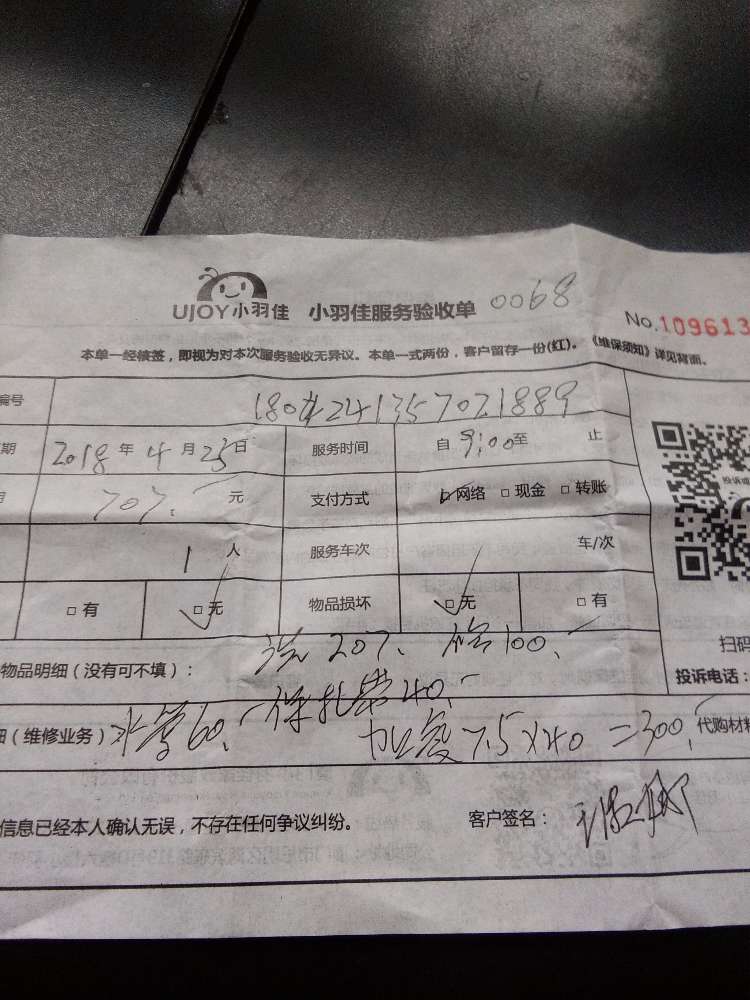 UJOY小羽佳 小羽佳服务验收单 0068
No.109613
本单一经核签,即视为对本次服务验收无异议。本单一式两份,客户留存一份(红)。《维保须知》详见背面。
编号 1804241357021889
期 2018年4月25日 服务时间 自9:00至 止
707.元 支付方式 □网络 □现金 □转账
1人 服务车次 车/次
□有 □无 物品损坏 □无 □有
洗207、 修100、
物品明细(没有可不填): 扫码
保扎带40、 投诉电话:
(维修业务)水管60、 加氟7.5×40=300、 代购材料
信息已经本人确认无误,不存在任何争议纠纷。 客户签名: